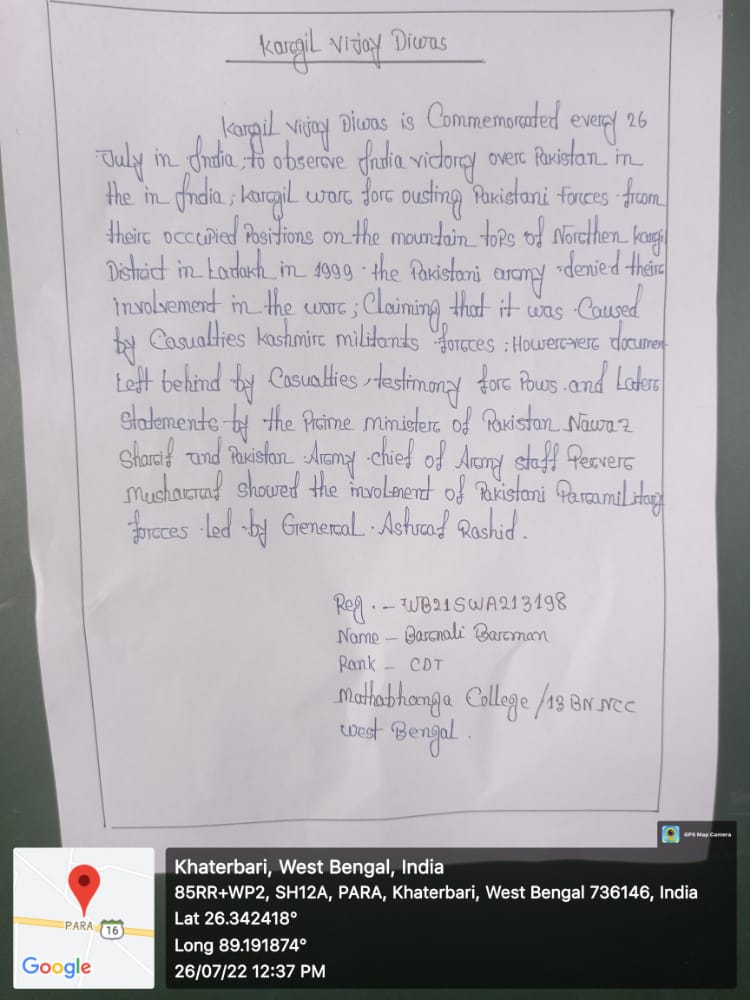 Kargil Vijay Diwas
Kargil Vijay Diwas is Commemorated every 26
July in India, to observe India victory over Pakistan in
the in India, Kargil war for ousting Pakistani forces from
their occupied Positions on the mountain tops of Northen Kargil
District in Ladakh in 1999. the Pakistani army denied their
involvement in the war; Claiming that it was Caused
by Casualties Kashmir militants forces: However-ver documen
Left behind by Casualties, testimony for Pows and Laters
Statements by the Prime minister of Pakistan Nawaz
Sharif and Pakistan Army chief of Army staff Perver
Musharraf showed the involment of Pakistani Paramilitary
forces led by General Ashraf Rashid.
Reg. - WB21SWA213198
Name - Barnali Barman
Rank - CDT
Mathabhanga College/13 BN NCC
West Bengal.
GPS Map Camera
Khaterbari, West Bengal, India
85RR+WP2, SH12A, PARA, Khaterbari, West Bengal 736146, India
Lat 26.342418°
Long 89.191874°
26/07/22 12:37 PM
PARA
16
Google